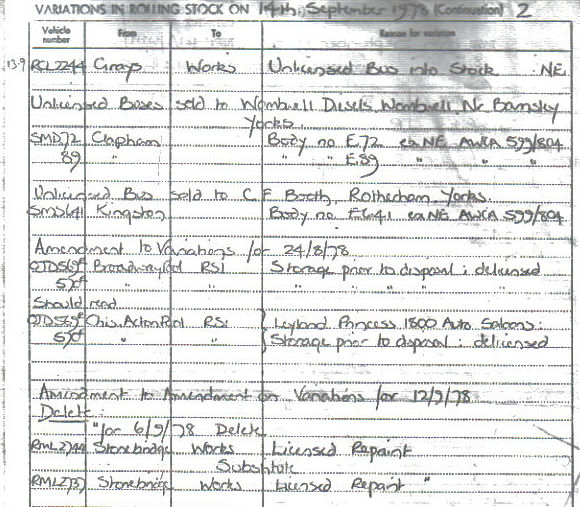 VARIATIONS IN ROLLING STOCK ON 14th September 1978 (Continuation) 2
Vehicle number From To Reason for variation
13.9 RCL2244 Grays Works Unlicensed Bus into Stock NE
Unlicensed Buses sold to Wombwell Diesels, Wombwell, Nr Barnsley
Yorks.
SMD72 Clapham Body no E.72 ex NE AWCA 599/804
89 " " " E.89 " " "
Unlicensed Bus sold to C F Booth, Rotherham, Yorks.
SMS641 Kingston Body no E641 ex NE AWCA 599/804
Amendment to Variations for 24/8/78
Broadway RSI Storage prior to disposal : delicensed
" " " " " " "
Should read
Chis. Acton RSI Leyland Princess 1800 Auto Saloons :
" " Storage prior to disposal : delicensed
Amendment to Amendment on Variations for 12/9/78
Delete :
"for 6/9/78 Delete
RML2744 Stonebridge Works Licensed Repaint
Substitute
Stonebridge Works Licensed Repaint "